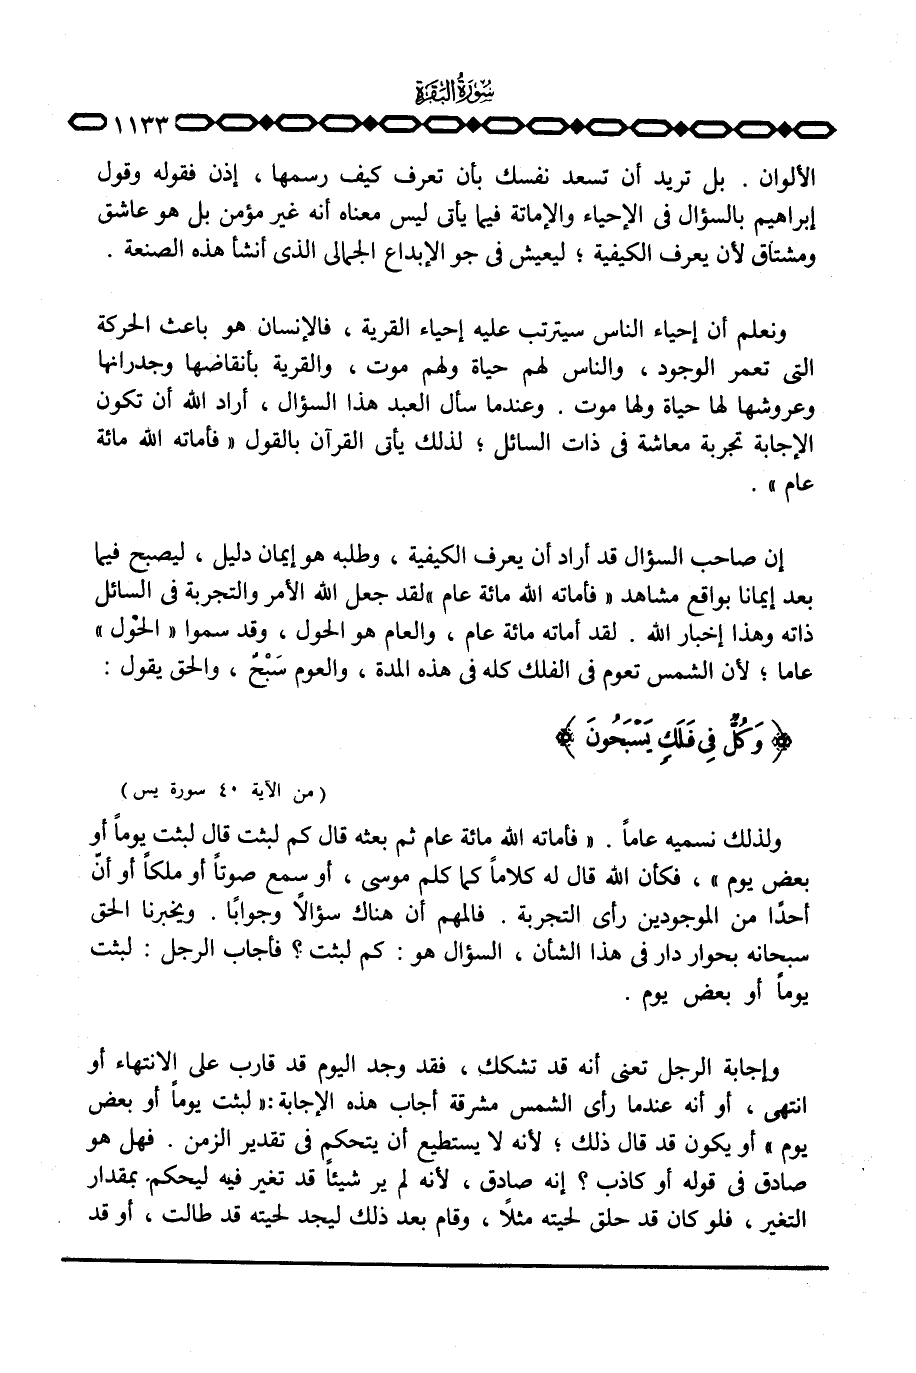 سُورَةُ البَقَرَةِ
١١٣٣
الألوان . بل تريد أن تسعد نفسك بأن تعرف كيف رسمها ، إذن فقوله وقول
إبراهيم بالسؤال فى الإحياء والإماتة فيما يأتى ليس معناه أنه غير مؤمن بل هو عاشق
ومشتاق لأن يعرف الكيفية ؛ ليعيش فى جو الإبداع الجمالى الذى أنشأ هذه الصنعة .
ونعلم أن إحياء الناس سيترتب عليه إحياء القرية ، فالإنسان هو باعث الحركة
التى تعمر الوجود ، والناس لهم حياة ولهم موت ، والقرية بأنقاضها وجدرانها
وعروشها لها حياة ولها موت . وعندما سأل العبد هذا السؤال ، أراد الله أن تكون
الإجابة تجربة معاشة فى ذات السائل ؛ لذلك يأتى القرآن بالقول « فأماته الله مائة
عام » .
إن صاحب السؤال قد أراد أن يعرف الكيفية ، وطلبه هو إيمان دليل ، ليصبح فيما
بعد إيمانا بواقع مشاهد « فأماته الله مائة عام »لقد جعل الله الأمر والتجربة فى السائل
ذاته وهذا إخبار الله . لقد أماته مائة عام ، والعام هو الحول ، وقد سموا « الحَوْل »
عاما ؛ لأن الشمس تعوم فى الفلك كله فى هذه المدة ، والعوم سَبْحٌ ، والحق يقول :
﴿ وَكُلٌّ فِى فَلَكٍ يَسْبَحُونَ ﴾
( من الآية ٤٠ سورة يس )
ولذلك نسميه عاماً . « فأماته الله مائة عام ثم بعثه قال كم لبثت قال لبثت يوماً أو
بعض يوم » ، فكأن الله قال له كلاماً كما كلم موسى ، أو سمع صوتاً أو ملكاً أو أنّ
أحدًا من الموجودين رأى التجربة . فالمهم أن هناك سؤالًا وجوابًا . ويخبرنا الحق
سبحانه بحوار دار فى هذا الشأن ، السؤال هو : كم لبثت ؟ فأجاب الرجل : لبثت
يوماً أو بعض يوم .
وإجابة الرجل تعنى أنه قد تشكك ، فقد وجد اليوم قد قارب على الانتهاء أو
انتهى ، أو أنه عندما رأى الشمس مشرقة أجاب هذه الإجابة :« لبثت يوماً أو بعض
يوم » أو يكون قد قال ذلك ؛ لأنه لا يستطيع أن يتحكم فى تقدير الزمن . فهل هو
صادق فى قوله أو كاذب ؟ إنه صادق ، لأنه لم ير شيئاً قد تغير فيه ليحكم بمقدار
التغير ، فلو كان قد حلق لحيته مثلًا ، وقام بعد ذلك ليجد لحيته قد طالت ، أو قد